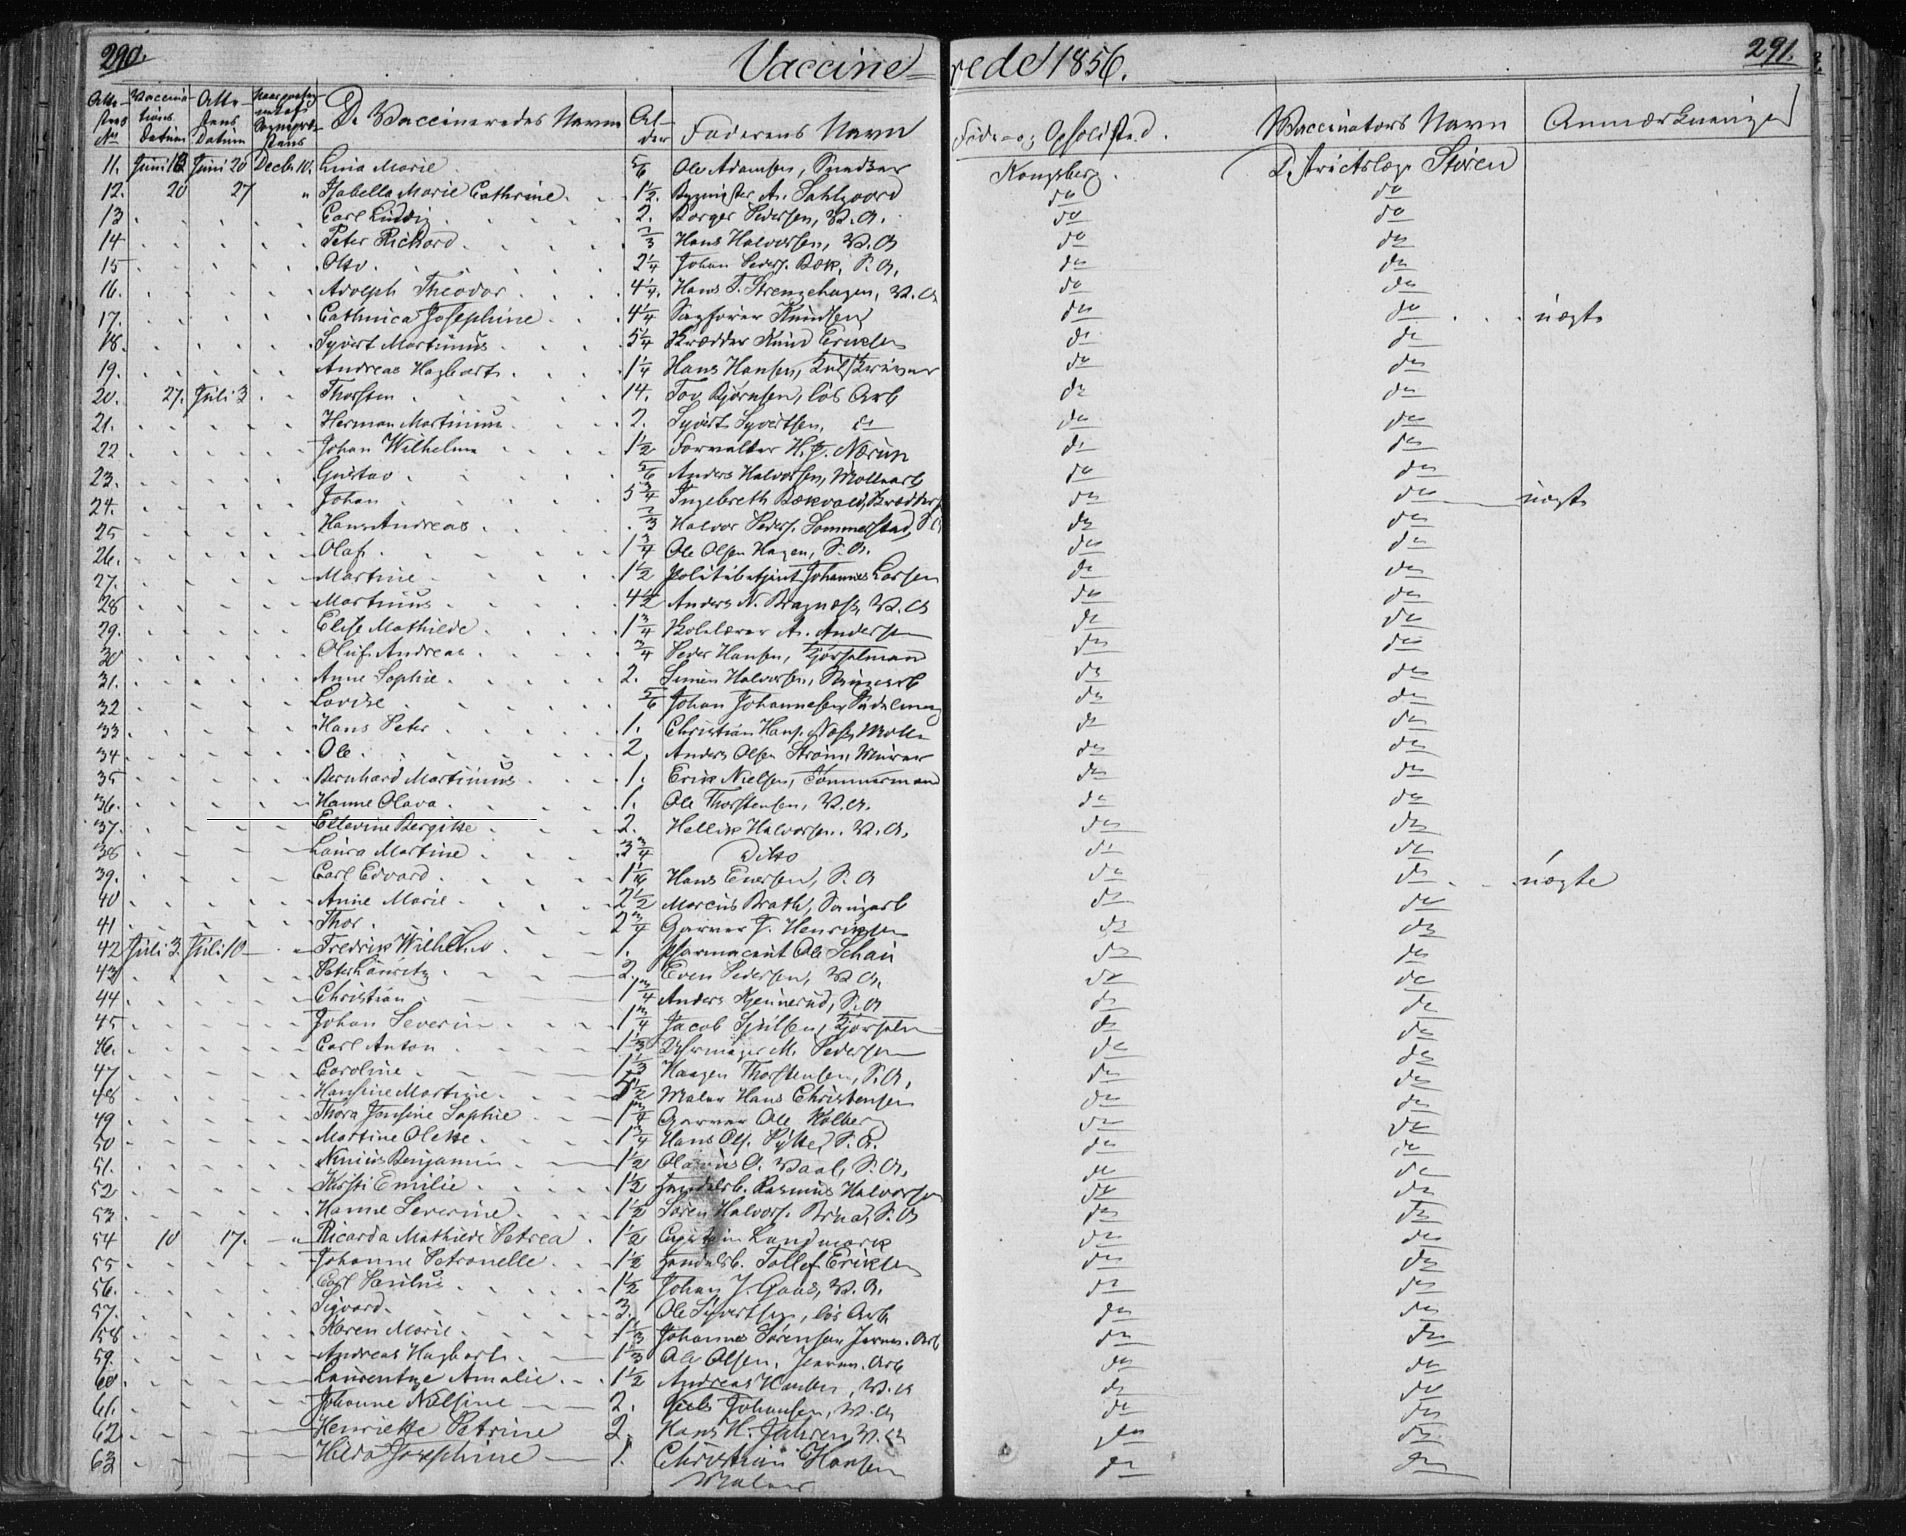 290. Vaccinerede 1856. 291.
Atte- stens No Vaccina- tions Datum Atte- stens Datum De Vaccineredes Navn Al- der Faderens Navn Føde- og Opholdsted. Vaccinators Navn Anmærkninger
11. Juni 13 Juni 20 Decbr 10. Lina Marie 5/6 Ole Adamsen, Snedker Kongsberg. Districtslæge Støren
12. 20 27 " Isabella Marie Cathrine. 1 1/2. A. Sahlgaard do do
13 Carl Ludvig 2. Borger Pedersen, V. A. do do
14 Peter Richard 2/3 Hans Halvorsen, V. A do do
15 Otto. 2 1/4 Johan Peders. Bæk, S. A. do do
16. Adolph Theodor 4 1/4. Hans T. Strengehagen, V. A do do
17. Cathinca Josephine 4 1/4 Sagfører Knudsen do do nægte
18. Syvert Martinius 5 1/4 Skrædder Knud Eriksen do do
19. Andreas Hagbart 1 1/4 Hans Hansen, do do
20. 27. Juli 3 Thorsten 14. Tov Bjørnsen, løs Arb do do
21. Herman Martinius 2. Syvert Syvertsen, do do do
22 Johan Wilhelm 1 1/2 Forvalter H. Nærup do do
23. Gustav 5/6 Anders Halvorsen, do do
24. Johan 5 3/4 Ingebreth Bækvold, Skrædder do do nægte
25 Hans Andreas 2/3 Halvor Peders. Sommerstad, S A do do
26. Olaf 1 3/4 Ole Olsen Hagen, S. A. do do
27. Martine 1 1/2 Politibetjent Johannes Larsen do do
28 Martinius 4 1/2 Anders N. Bragnæs, V. A do do
29. Elise Mathilde 1 3/4 A. Andersen do do
30 Oluf Andreas 3/4 Peder Hansen, Kjørselmand do do
31. Anne Sophie 2. Simen Halvorsen, do do
32 Lovise 5/6 Johan Johannesen do do
33. Hans Peter 1. Christian Hans. do do
34. Ole 2. Anders Olsen Strøm, Murer do do
35 Bernhard Martinius 1. Erik Nielsen, Tømmermand do do
36. Hanne Olava 1. Ole Thorstensen, V. A. do do
37. Ellevine Bergitte 2. Hellik Halvorsen. V. A. do do
38 Laura Martine 3 3/4 Ditto do do
39. Carl Edvard Hans Evensen, S. A do do nægte
40 Anne Marie 2 1/2 Marcus Brath, do do
41. Thor 2 3/4 Garver J. Henriksen do do
42 Juli 3. Juli 10 Fredrik Wilhelm 1. Pharmaceut Ole Schau do do
43 Peter Lauritz 2. Even Pedersen, V. A. do do
44. Christian 1 3/4 Anders Kjennerud, S. A do do
45 Johan Severin 1 3/4 Jacob Kjørselm do do
46. Carl Anton 1 1/3 Uhrmager M. Pedersen do do
47 Caroline 1 1/3 Haagen Thorstensen, S. A. do do
48 Hansine Martine Maler Hans Christensen do do
49 Thora Jensine Sophie 1 3/4 Garver Ole Kolberg do do
50 Martine Olette 1 3/4 Hans Ols. S. A. do do
51. Benjamin 1 1/2 O. S. A. do do
52 Kirsti Emilie 1 1/2 Handelsb. Rasmus Halvorsen do do
53 Hanne Severine 1 1/2 Søren Halvors. S. A do do
54 10 17. " Ricarda Mathilde Petrea 1 1/2 Capitain Landmark do do
55 Johanne Petronelle 1 1/2 Handelsb. Tollef Eriksen do do
56. Carl 1 1/2 Johan J. V. A. do do
57. Sigvard 3. Ole Syvertsen, løs Arb do do
58 Karen Marie 1 1/3 Johannes Sørensen Arb do do
59. Andreas Hagbart 1 1/3 Ole Olsen, Arb do do
60. Laurentze Amalie 1 1/2 Andreas V. A do do
61. Johanne Nilsine 2. Johansen, V. A do do
62 Henriette Petrine 2. Hans H. V. A do do
63 Hilda Josephine 1. Christian Hansen do do
Maler